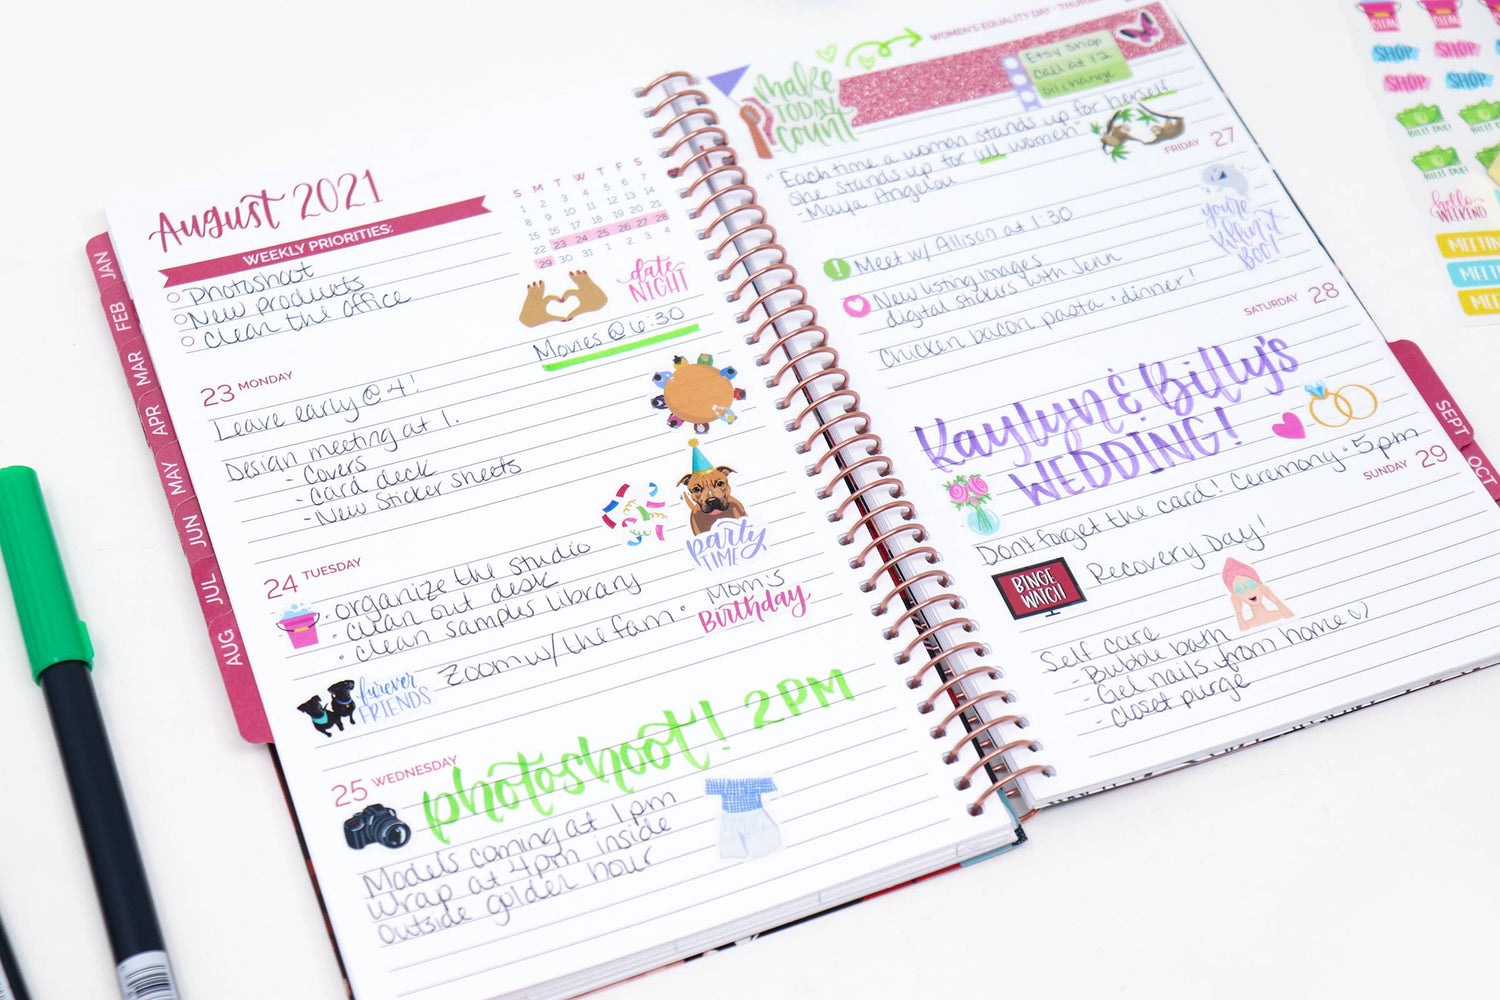 August 2021
WEEKLY PRIORITIES:
Photoshoot
New products
Clean the office
S M T W T F S
1 2 3 4 5 6 7
8 9 10 11 12 13 14
15 16 17 18 19 20 21
22 23 24 25 26 27 28
29 30 31 1 2 3 4
date
NIGHT
Movies @ 6:30
23 MONDAY
Leave early @ 4!
Design meeting at 1.
- Covers
- Card deck
- New sticker sheets
24 TUESDAY
• organize the studio
• clean out desk
• clean sample library
party
TIME
Zoom w/ the fam •
Mom's
Birthday
furever
FRIENDS
25 WEDNESDAY
photoshoot! 2PM
Models coming at 1pm
Wrap at 4pm inside
Outside golden hour
JAN
FEB
MAR
APR
MAY
JUN
JUL
AUG
WOMEN'S EQUALITY DAY - THURSD
make
TODAY
count
Etsy shop
call at 12
oil change
"Each time a woman stands up for herself
she stands up for all women"
- Maya Angelou
FRIDAY 27
you're
killin' it
BOO!
! Meet w/ Allison at 1:30
New listing images
digital stickers with Jenn
Chicken bacon pasta • dinner!
SATURDAY 28
Kaylyn & Billy's
WEDDING!
Don't forget the card! Ceremony • 5pm
SUNDAY 29
BINGE
WATCH
Recovery Day!
Self care
- Bubble bath
- Gel nails from home
- Closet purge
SEPT
OCT
CLEAN
CLEAN
SHOP
SHOP
SHOP
SHOP
BILLS DUE!
BILLS DUE!
hello
WEEKEND
MEETIN
MEETIN
MEET